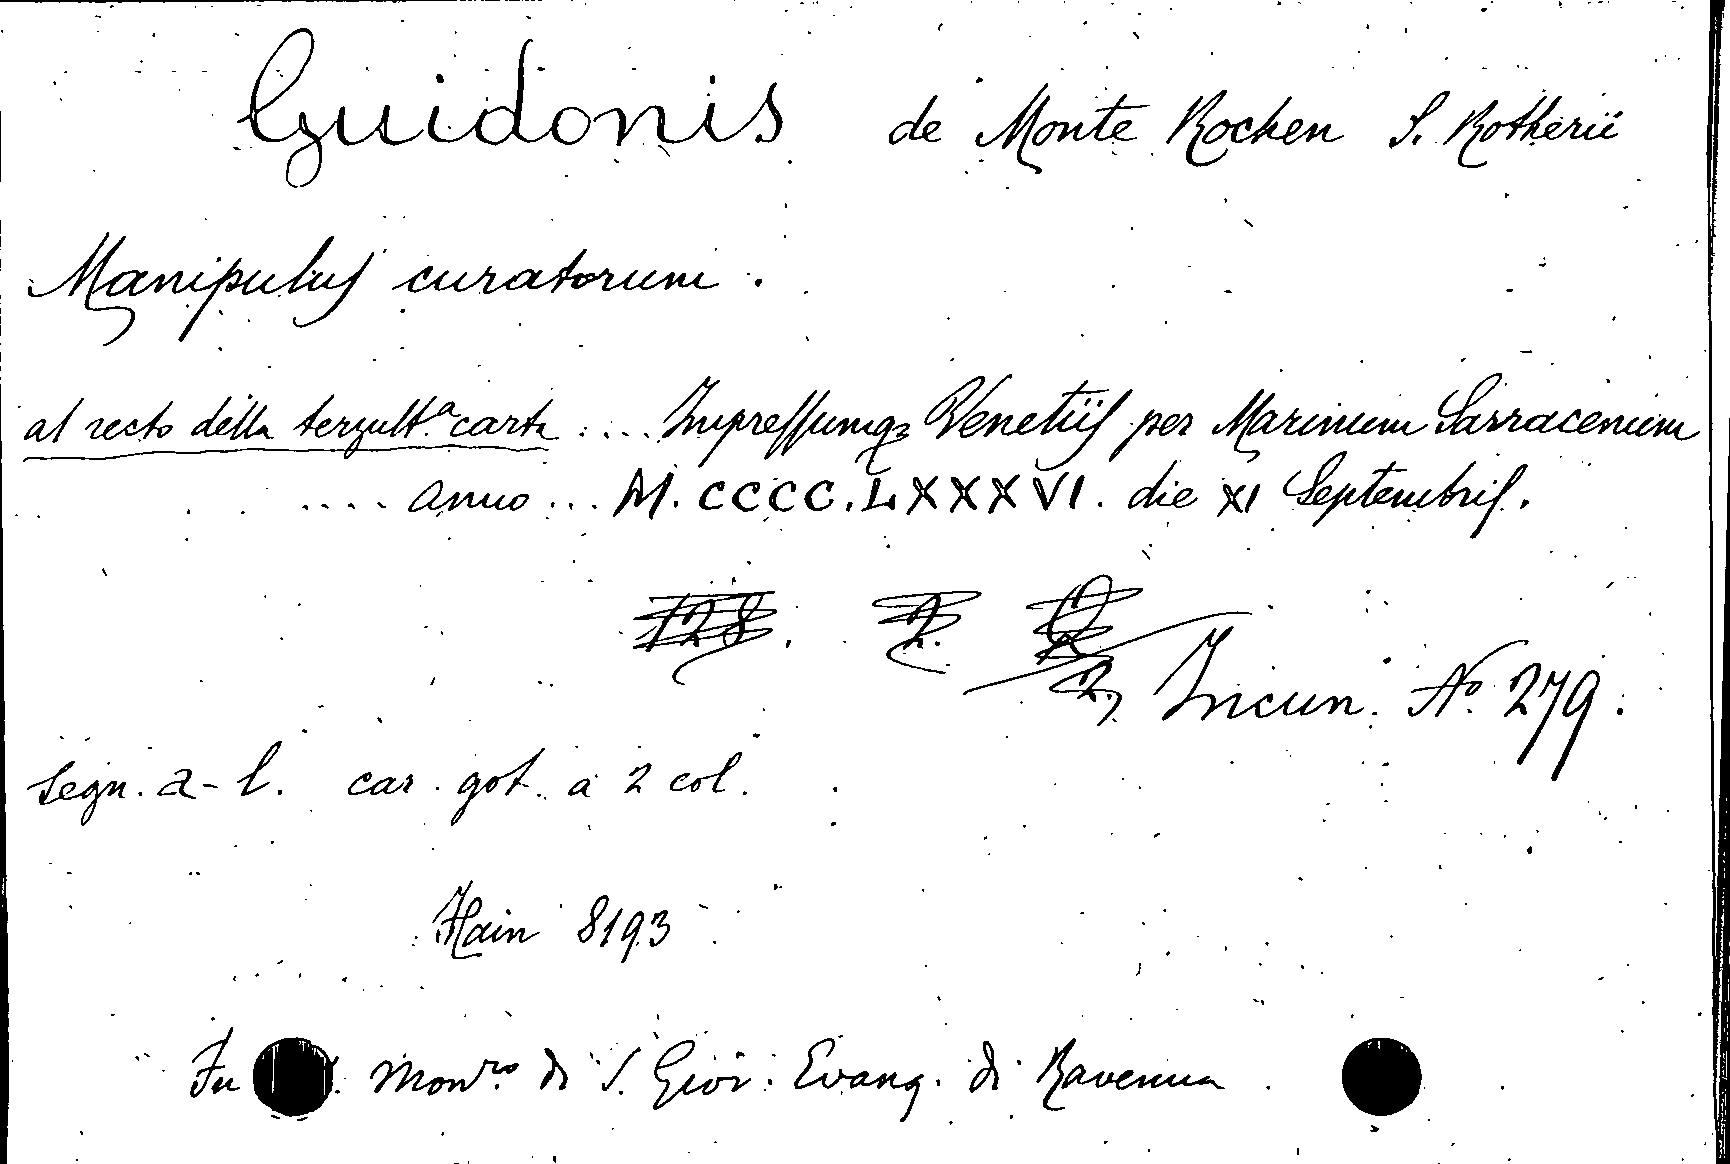 Guidonis de Monte Rochen S. Rotherii
Manipulus curatorum.
al recto della terzult.ª carta .... Impressumqȝ Venetiis per Marinum Sarracenum
.... anno ... M.CCCC.LXXXVI. die XI Septembris.
128. 2.
2, Incun. Nº 279.
segn. a-l. car. got. a 2 col.
Hain 8193
Fu Mon.ro di S. Giov. Evang. di Ravenna